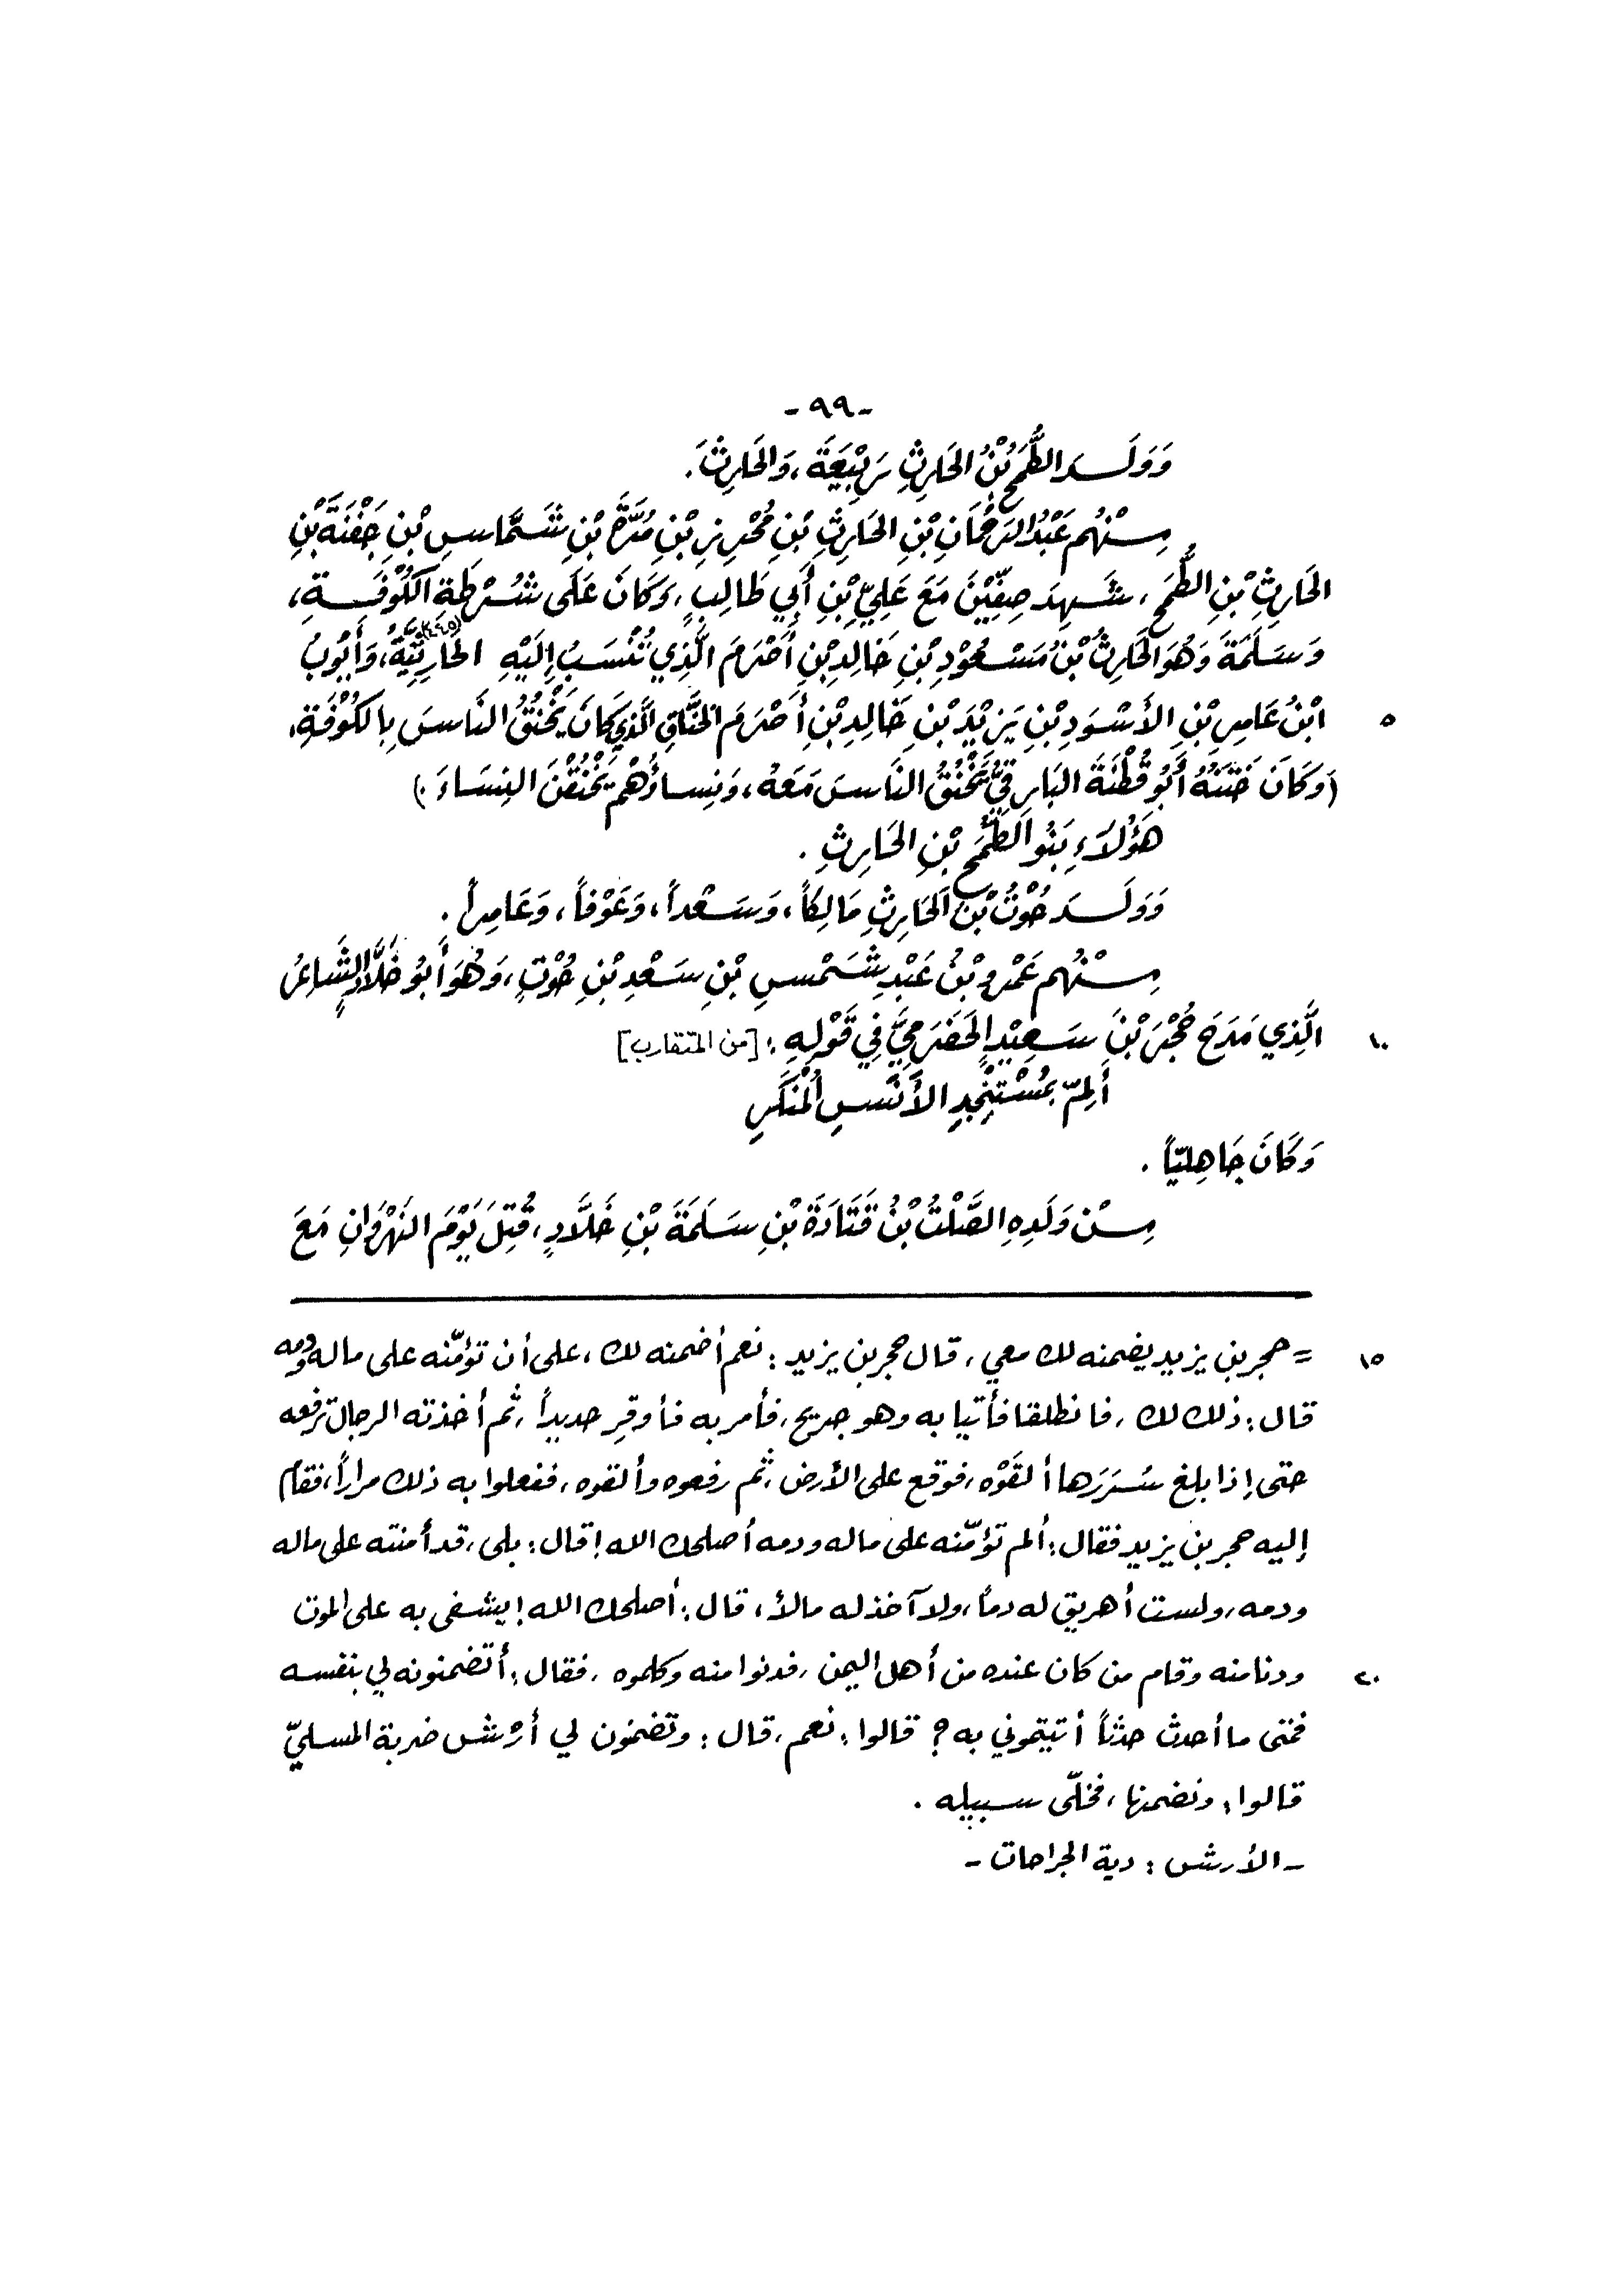 -٩٩-
وَوَلَـدَ الطُّمَحُ بْنُ الحَارِثِ رَبِيْعَةَ، وَالحَارِثَ.
مِـنْهُم عَبْدُ الرَّحْمَانِ بْنِ الحَارِثِ بْنِ مُحْرِزِ بْنِ مُرَّةَ بْنِ شَمَّاسِ بْنِ جَفْنَةَ بْنِ
الحَارِثِ بْنِ الطُّمَحِ، شَهِدَ صِفِّيْنَ مَعَ عَلِيِّ بْنِ أَبِي طَالِبٍ، وَكَانَ عَلَى شُرْطَةِ الكُوْفَـةِ،
وَسَلَمَةَ وَهُوَ الحَارِثُ بْنُ مَسْعُوْدِ بْنِ خَالِدِ بْنِ أَصْرَمَ الَّذِي تُنْسَبُ إِلَيْهِ الحَارِثِيَّةُ، وَأَيُّوبُ
٥ ابْنُ عَامِرِ بْنِ الأَسْوَدِ بْنِ يَزِيْدَ بْنِ خَالِدِ بْنِ أَصْرَمَ الخَنَّاقِ الَّذِي كَانَ يَخْنُقُ النَّاسَ بِالكُوْفَةِ،
(وَكَانَ خَتَنَهُ أَبُو قُطْنَةَ البَارِقِيُّ يَخْنُقُ النَّاسَ مَعَهُ، وَنِسَاؤُهُمْ يَخْنُقْنَ النِسَاءَ.)
هَؤُلَاءِ بَنُو الطُّمَحِ بْنِ الحَارِثِ.
وَوَلَـدَ حُوْتُ بْنُ الحَارِثِ مَالِكاً، وَسَعْداً، وَعَوْفاً، وَعَامِراً.
مِـنْهُم عَمْرو بْنُ عَبْدِ شَمْسِ بْنِ سَعْدِ بْنِ حُوْتٍ، وَهُوَ أَبُو خَلَّادٍ الشَّاعِرُ
١٠ الَّذِي مَدَحَ حُجْرَ بْنَ سَعِيْدٍ الحَضْرَمِيَّ فِي قَوْلِهِ: [من المتقارب]
أَلِمّ بِمُسْتَنْجِدِ الأَنَسِ المُنْكَرِ
وَكَانَ جَاهِلِيّاً.
مِـنْ وَلَدِهِ الصَّلْتُ بْنُ قَتَادَةَ بْنِ سَلَمَةَ بْنِ خَلَّادٍ، قُتِلَ يَوْمَ النَهْرَوَانِ مَعَ
١٥ = حجر بن يزيد يضمنه لك معي، قال حجر بن يزيد: نعم أضمنه لك، على أن تؤمّنه على ماله ودمه
قال: ذلك لك، فانطلقا فأتيا به وهو جريح، فأمر به فأوقِر حديداً، ثم أخذته الرجال ترفعه
حتى إذا بلغ سُرَرَها ألقَوْه، فوقع على الأرض، ثم رفعوه وألقوه، ففعلوا به ذلك مراراً، فقام
إليه حجر بن يزيد فقال: ألم تؤمّنه على ماله ودمه أصلحك الله! قال: بلى، قد أمنته على ماله
ودمه، ولست أهريق له دماً، ولا آخذ له مالاً، قال: أصلحك الله! يشفى به على الموت
٢٠ ودنا منه وقام من كان عنده من أهل اليمن، فدنوا منه وكلموه، فقال: أتضمنونه لي بنفسه
فمتى ما أحدث حدثاً أتيتموني به؟ قالوا: نعم، قال: وتضمنون لي أرْش ضربة المسليّ
قالوا: ونضمنها، فخلّى سبيله.
- الأرش: دية الجراحات -